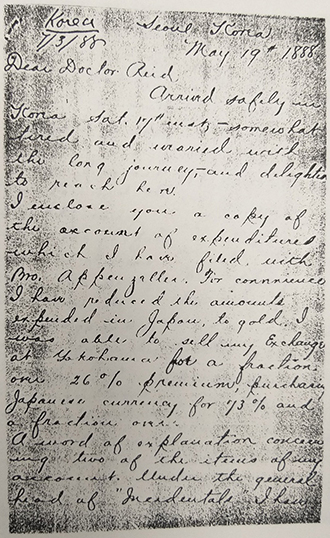 Korea
1/3/88
Seoul Korea
May 19th 1888
Dear Doctor Reid,
Arrived safely in
Korea Sat. inst, - somewhat
tired and worried with
the long journey, and delighted
to reach here.
I enclose you a copy of
the account of expenditures
which I have filed with
Bro. Appenzeller. For convenience
I have reduced the amounts
expended in Japan, to gold. I
was able to sell my Exchange
at Yokohama for a fraction
over 26% premium, purchasing
Japanese currency for 73% and
a fraction over.
A word of explanation concern
ing two of the items of my
account. Under the general
head of "Incidentals" I have